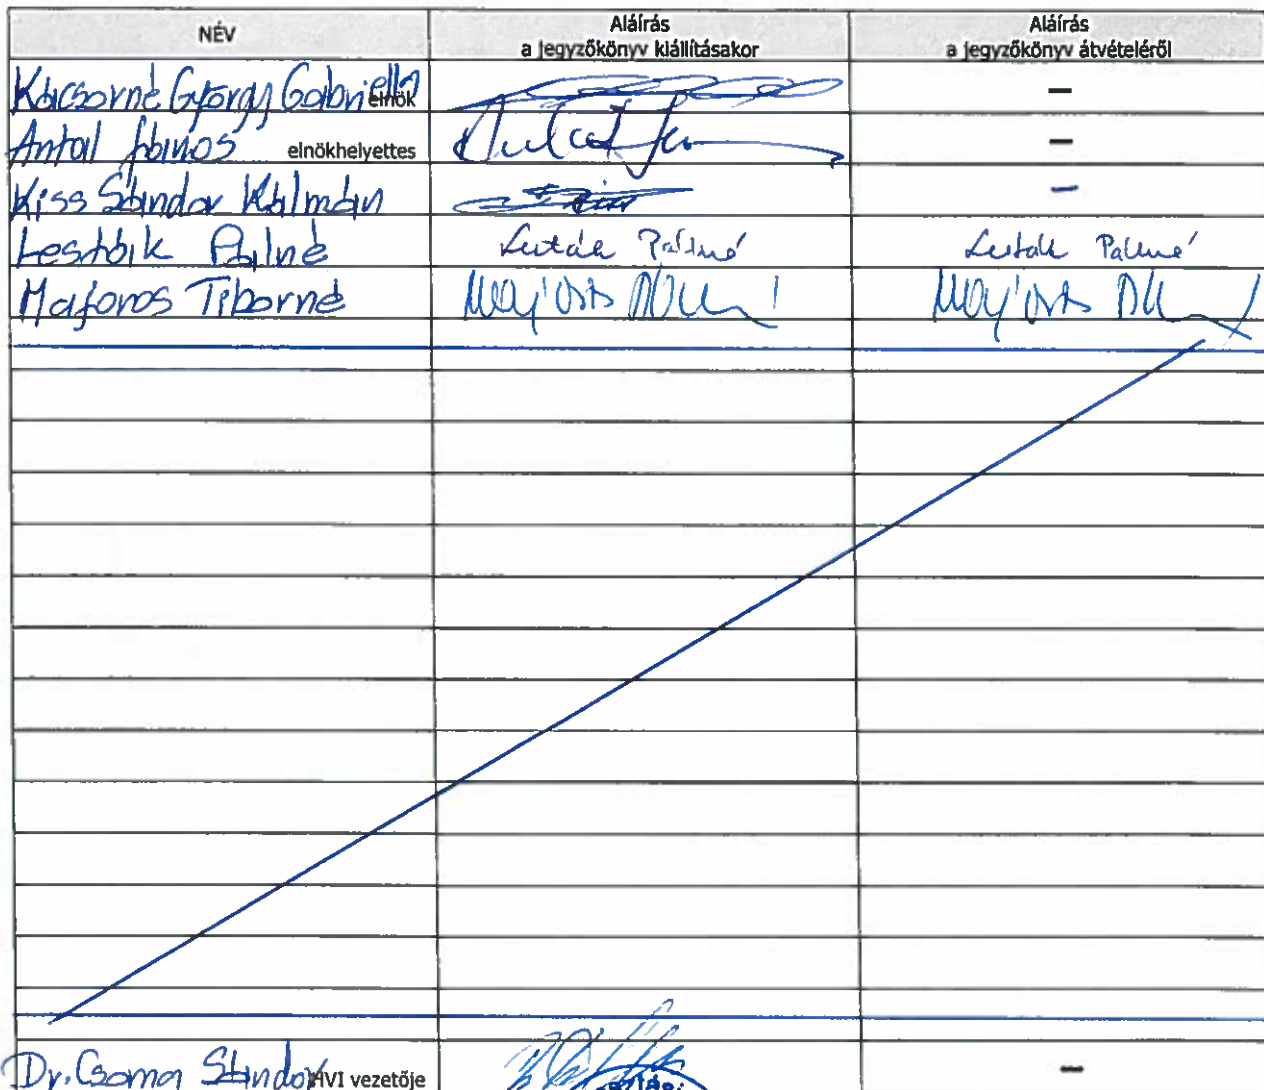 NÉV Aláírás a jegyzőkönyv kiállításakor Aláírás a jegyzőkönyv átvételéről
Kácsorné György Gabriella elnök —
Antal János elnökhelyettes —
Kiss Sándor Kálmán —
Lesták Pálné Lesták Pálné Lesták Pálné
Majoros Tiborné
Dr. Csoma Sándor HVI vezetője —